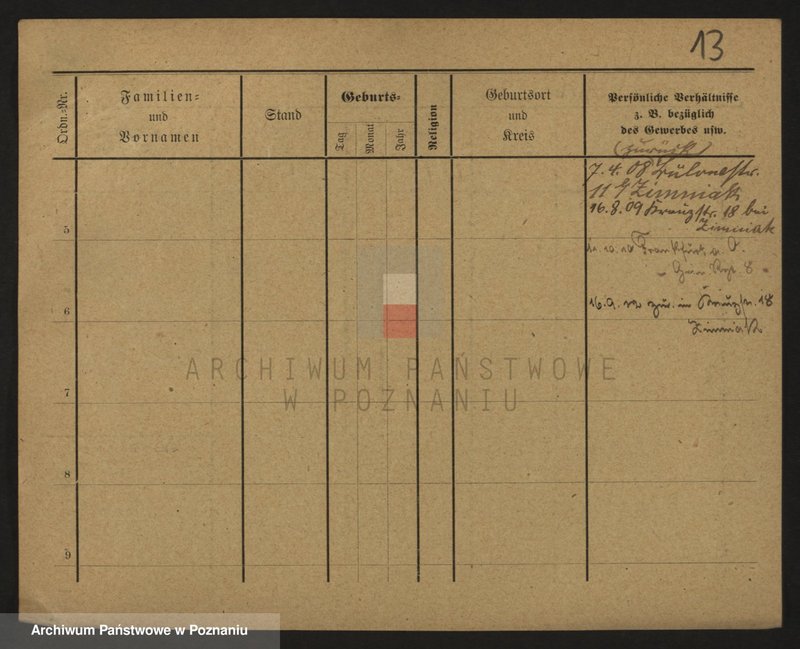 13
Ordn.-Nr.
Familien-
und
Vornamen
Stand
Geburts-
Tag
Monat
Jahr
Religion
Geburtsort
und
Kreis
Persönliche Verhältnisse
z. B. bezüglich
des Gewerbes usw.
(zurück)
7.4.08 Bülowstr.
11 b/ Zimniak
16.8.09 Kreuzstr. 18 bei
Zimniak
5
Frankfurt a. O.
Gren. Rgt. 8
16.9. zur. in Kreuzstr. 18
Zimniak
6
7
8
9
ARCHIWUM PAŃSTWOWE
W POZNANIU
Archiwum Państwowe w Poznaniu